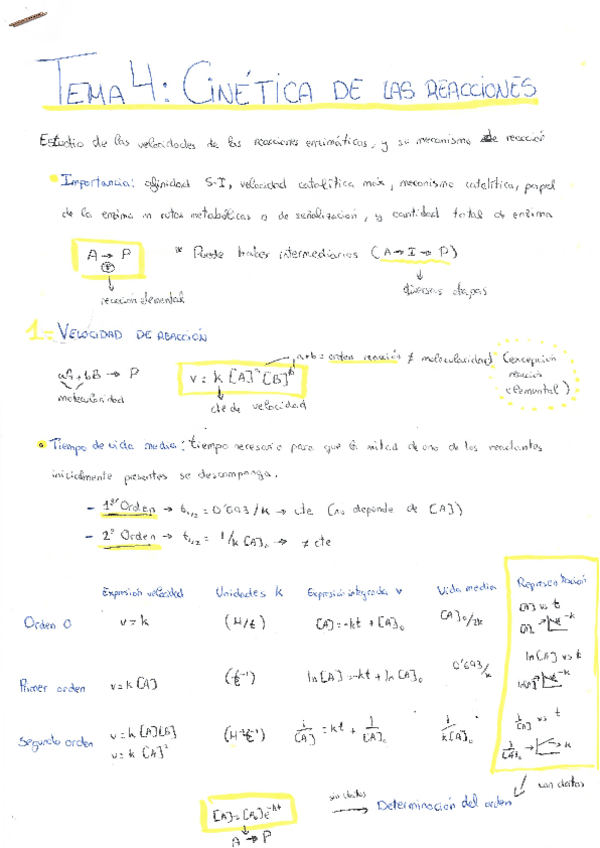 TEMA 4: CINÉTICA DE LAS REACCIONES
Estudio de las velocidades de las reacciones enzimáticas, y su mecanismo de reacción
Importancia: afinidad S-I, velocidad catalítica max, mecanismo catalítica, papel
de la enzima en rutas metabólicas o de señalización, y cantidad total de enzima
A → P
* Puede haber intermediarios (A → I → P)
reacción elemental
diversas etapas
1- VELOCIDAD DE REACCIÓN
aA + bB → P
v = k [A]ᵃ [B]ᵇ
a+b = orden reacción ≠ molecularidad (excepción
reacción
elemental)
molecularidad
cte de velocidad
Tiempo de vida media: tiempo necesario para que la mitad de uno de los reactantes
inicialmente presentes se descomponga.
- 1er Orden → t1/2 = 0'693/k → cte (no depende de [A])
- 2º Orden → t1/2 = 1/k[A]₀ → ≠ cte
Expresión velocidad Unidades k Expresión integrada v Vida media Representación
Orden 0 v = k (M/t) [A] = -kt + [A]₀ [A]₀/2k [A] vs t
[A] -k
Primer orden v = k [A] (t⁻¹) ln[A] = -kt + ln[A]₀ 0'693/k ln[A] vs t
-k
Segundo orden v = k [A][B] (M⁻¹t⁻¹) 1/[A] = kt + 1/[A]₀ 1/k[A]₀ 1/[A] vs t
v = k [A]² 1/[A]₀ k
[A] = [A₀]e⁻ᵏᵗ
A → P
sin datos
Determinación del orden
con datos